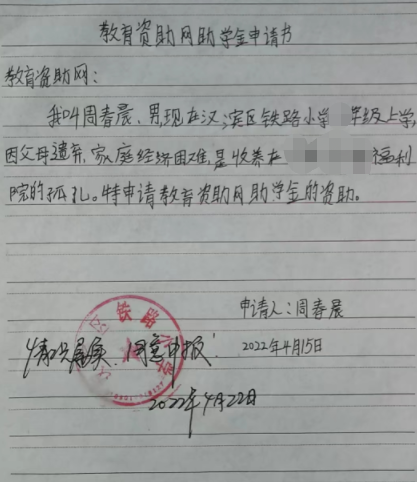 教育资助网助学金申请书
教育资助网：
我叫周春晨、男，现在汉滨区铁路小学 年级上学，
因父母遗弃、家庭经济困难，是收养在 福利
院的孤儿。特申请教育资助网助学金的资助。
申请人：周春晨
2022年4月15日
情况属实，同意申报！
2022年4月22日
铁路小学